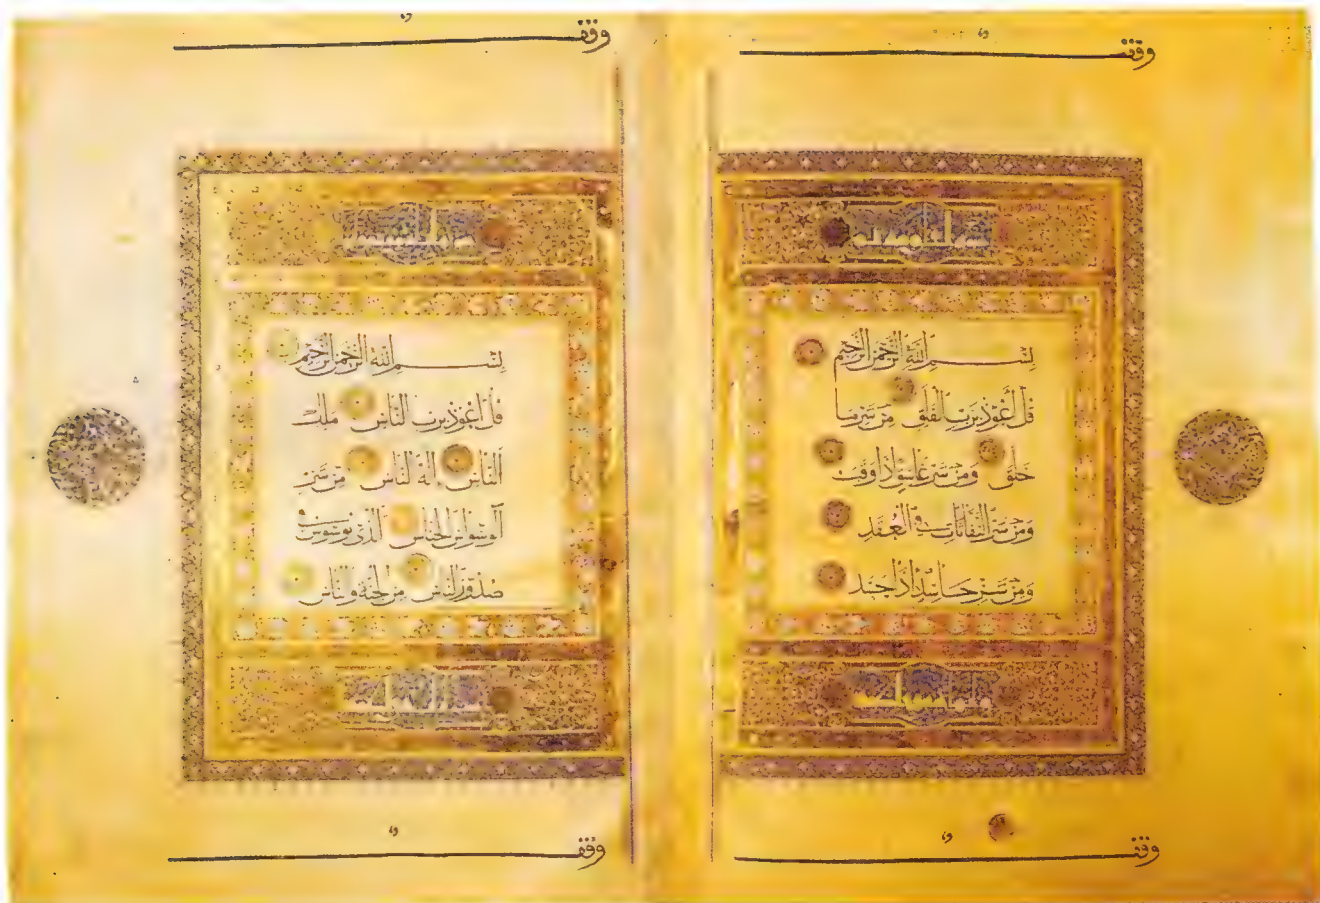 وقف
بِسْمِ اللَّهِ الرَّحْمَنِ الرَّحِيمِ
قُلْ أَعُوذُ بِرَبِّ الْفَلَقِ مِنْ شَرِّ مَا
خَلَقَ وَمِنْ شَرِّ غَاسِقٍ إِذَا وَقَبَ
وَمِنْ شَرِّ النَّفَّاثَاتِ فِي الْعُقَدِ
وَمِنْ شَرِّ حَاسِدٍ إِذَا حَسَدَ
وقف
وقف
بِسْمِ اللَّهِ الرَّحْمَنِ الرَّحِيمِ
قُلْ أَعُوذُ بِرَبِّ النَّاسِ مَلِكِ
النَّاسِ إِلَهِ النَّاسِ مِنْ شَرِّ
الْوَسْوَاسِ الْخَنَّاسِ الَّذِي يُوَسْوِسُ فِي
صُدُورِ النَّاسِ مِنَ الْجِنَّةِ وَالنَّاسِ
وقف